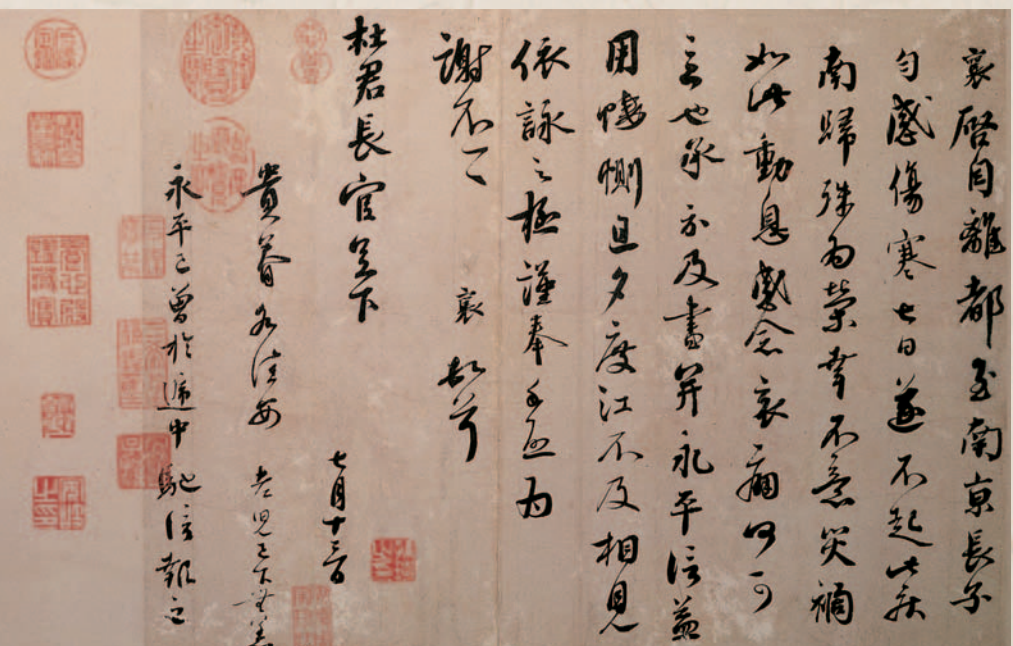 襄啓自離都至南京長子
勻感傷寒七日遂不起此疾
南歸殊為榮幸不意災禍
如此動息感念哀痛何可
言也承示及書并永平信益
用悽惻旦夕度江不及相見
依詠之極謹奉手啓为
謝不一一 襄 頓首
杜君長官足下
七月十三日
貴眷各佳安 老兒已下無恙
永平已曾於遞中馳信報之